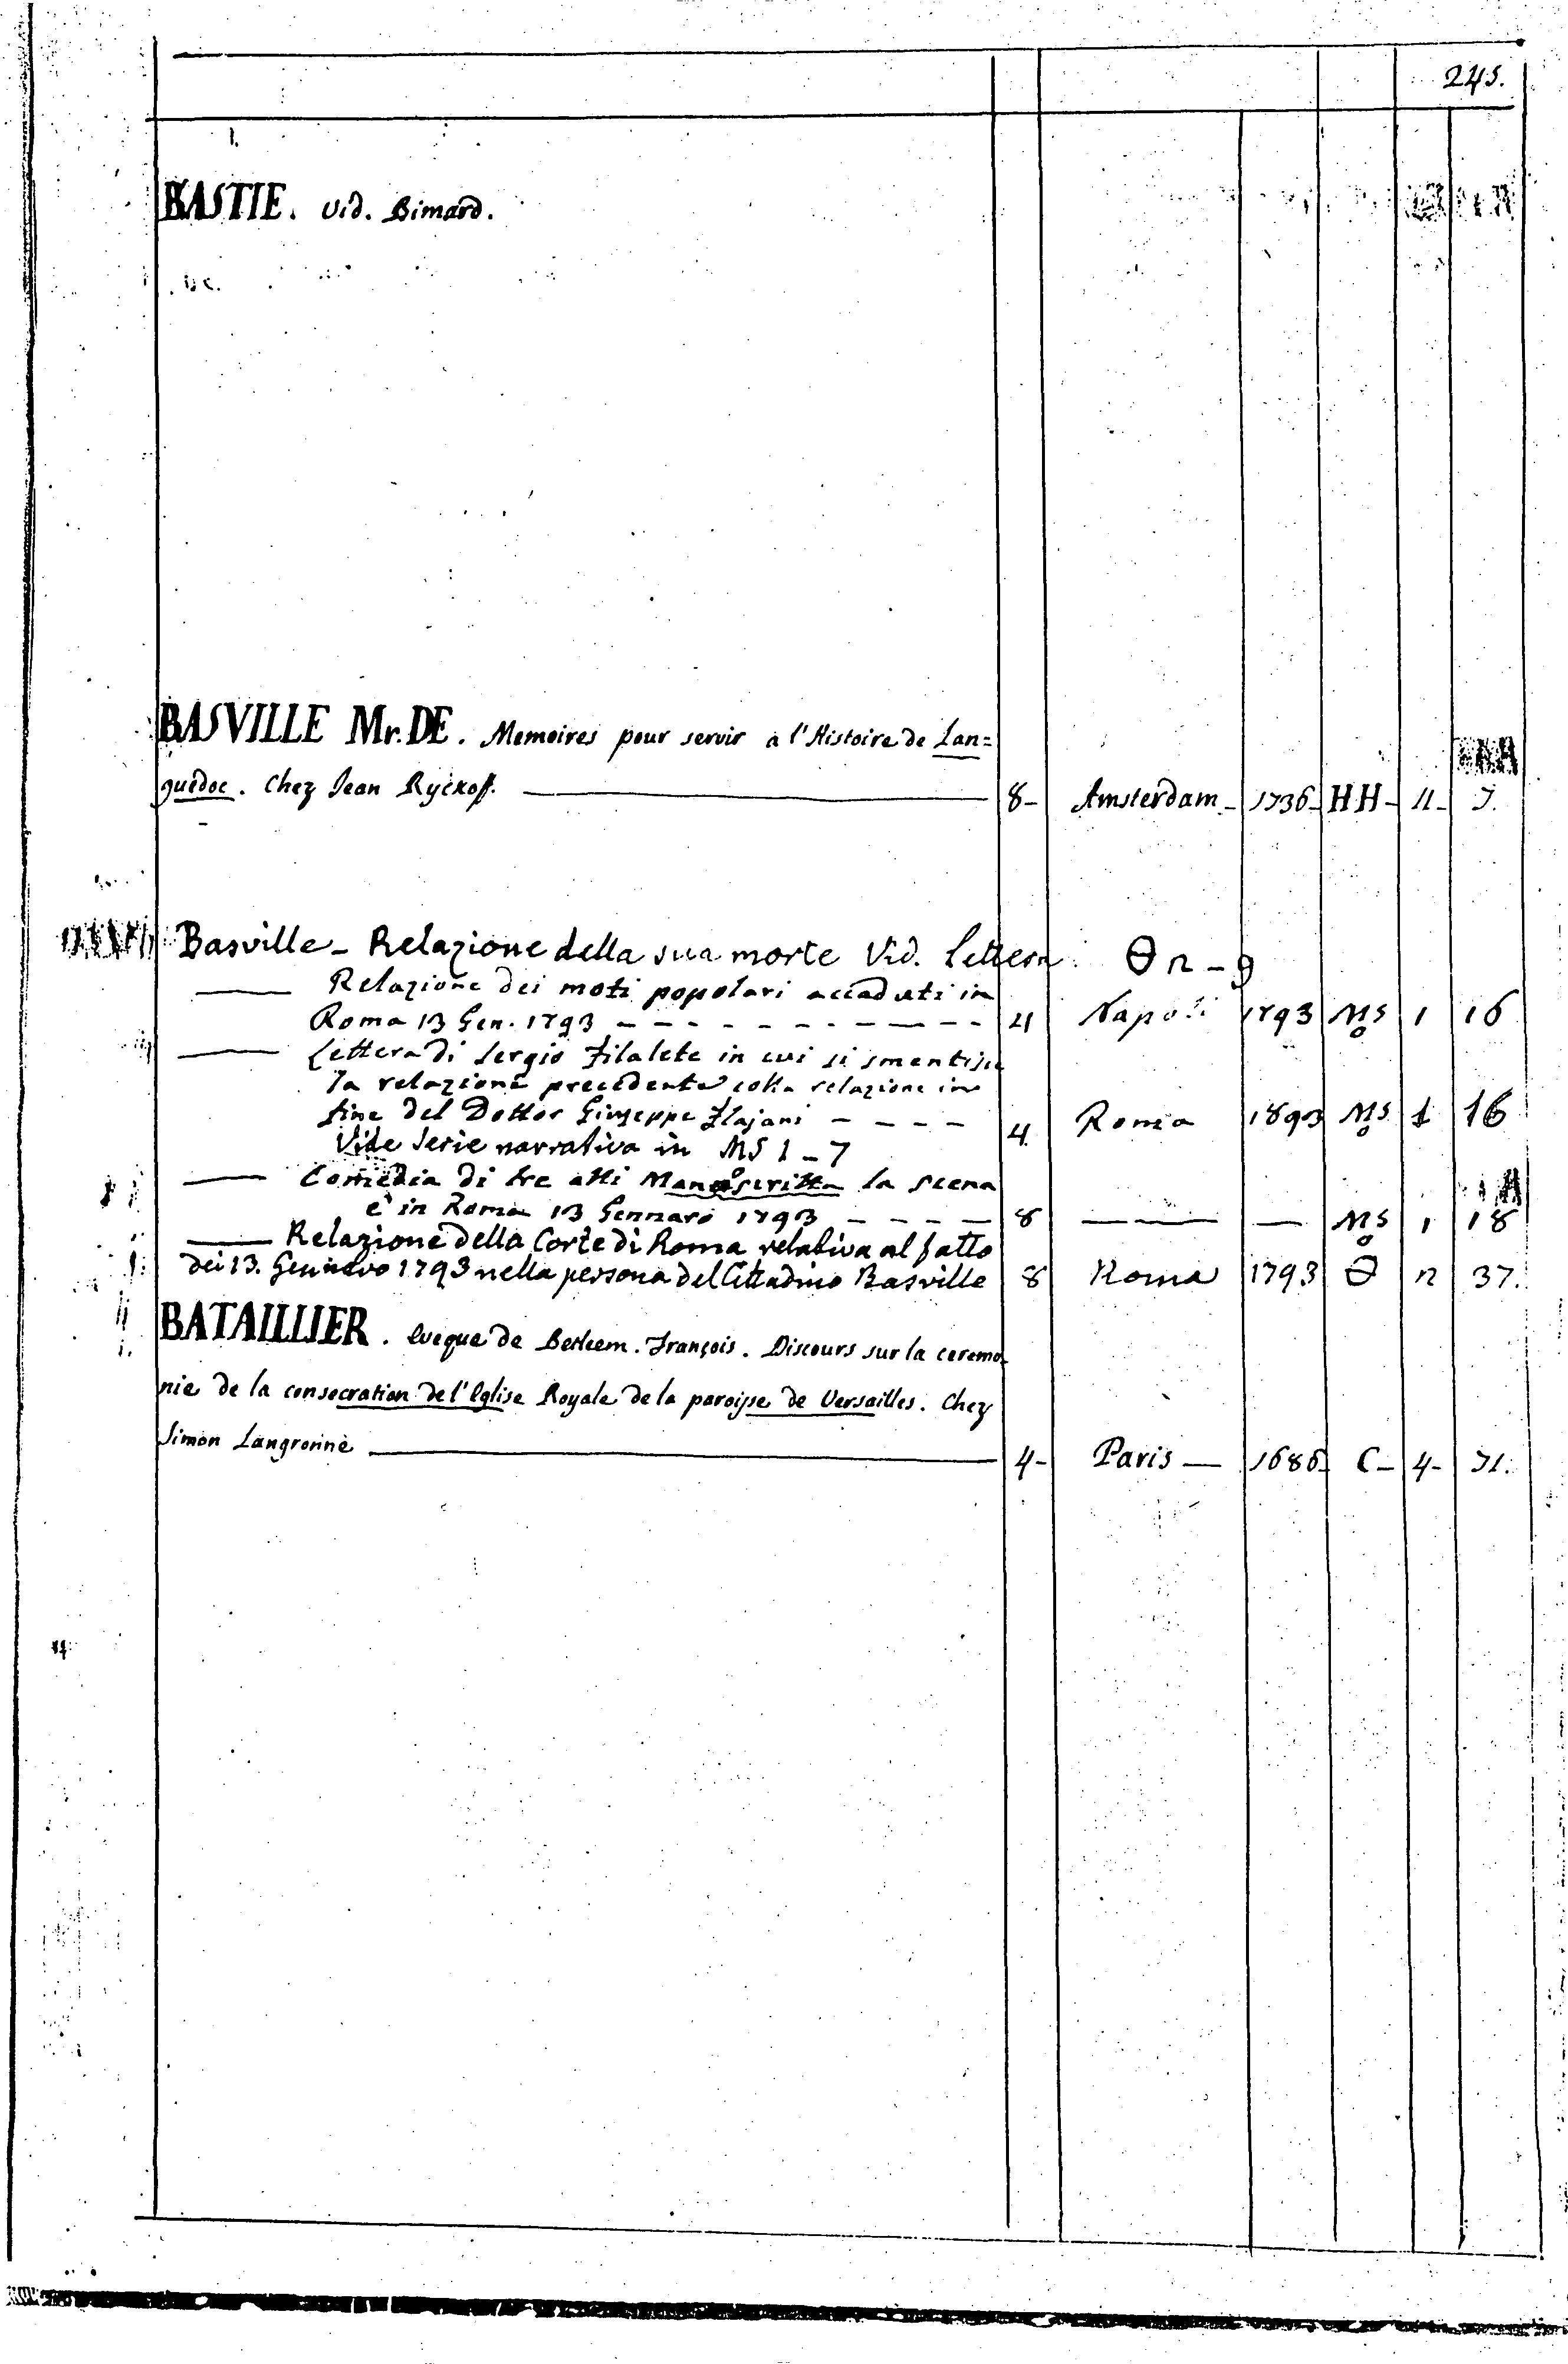 245.
BASTIE. vid. Bimard.
BASVILLE Mr. DE. Memoires pour servir a l'Histoire de Lan=
guedoc. Chez Jean Ryckoff. 8- Amsterdam- 1736- HH- 11- 7.
Basville - Relazione della sua morte Vid. Lettera Θ n - 9
Relazione dei moti popolari accaduti in
Roma 13 Gen. 1793 - - - - - - - - - - - 4 Napoli 1793 Mso 1 16
Lettera di Sergio Filalete in cui si smentisce
la relazione precedente colla relazione in
fine del Dottor Giuseppe Flajani - - - - 4. Roma 1893 Mso 1 16
Vide Serie narrativa in MS 1 - 7
Comedia di tre atti Manoscritta la scena
e' in Roma 13 Gennaro 1793 - - - - 8 — — Mso 1 18
Relazione della Corte di Roma relativa al fatto
dei 13. Gennaro 1793 nella persona del Cittadino Basville 8 Roma 1793 Θ n 37.
BATAILLIER. Eveque de Betleem. François. Discours sur la ceremo
nie de la consocration de l'Eglise Royale de la paroisse de Versailles. Chez
Simon Langronne 4- Paris — 1686- C- 4- 31.